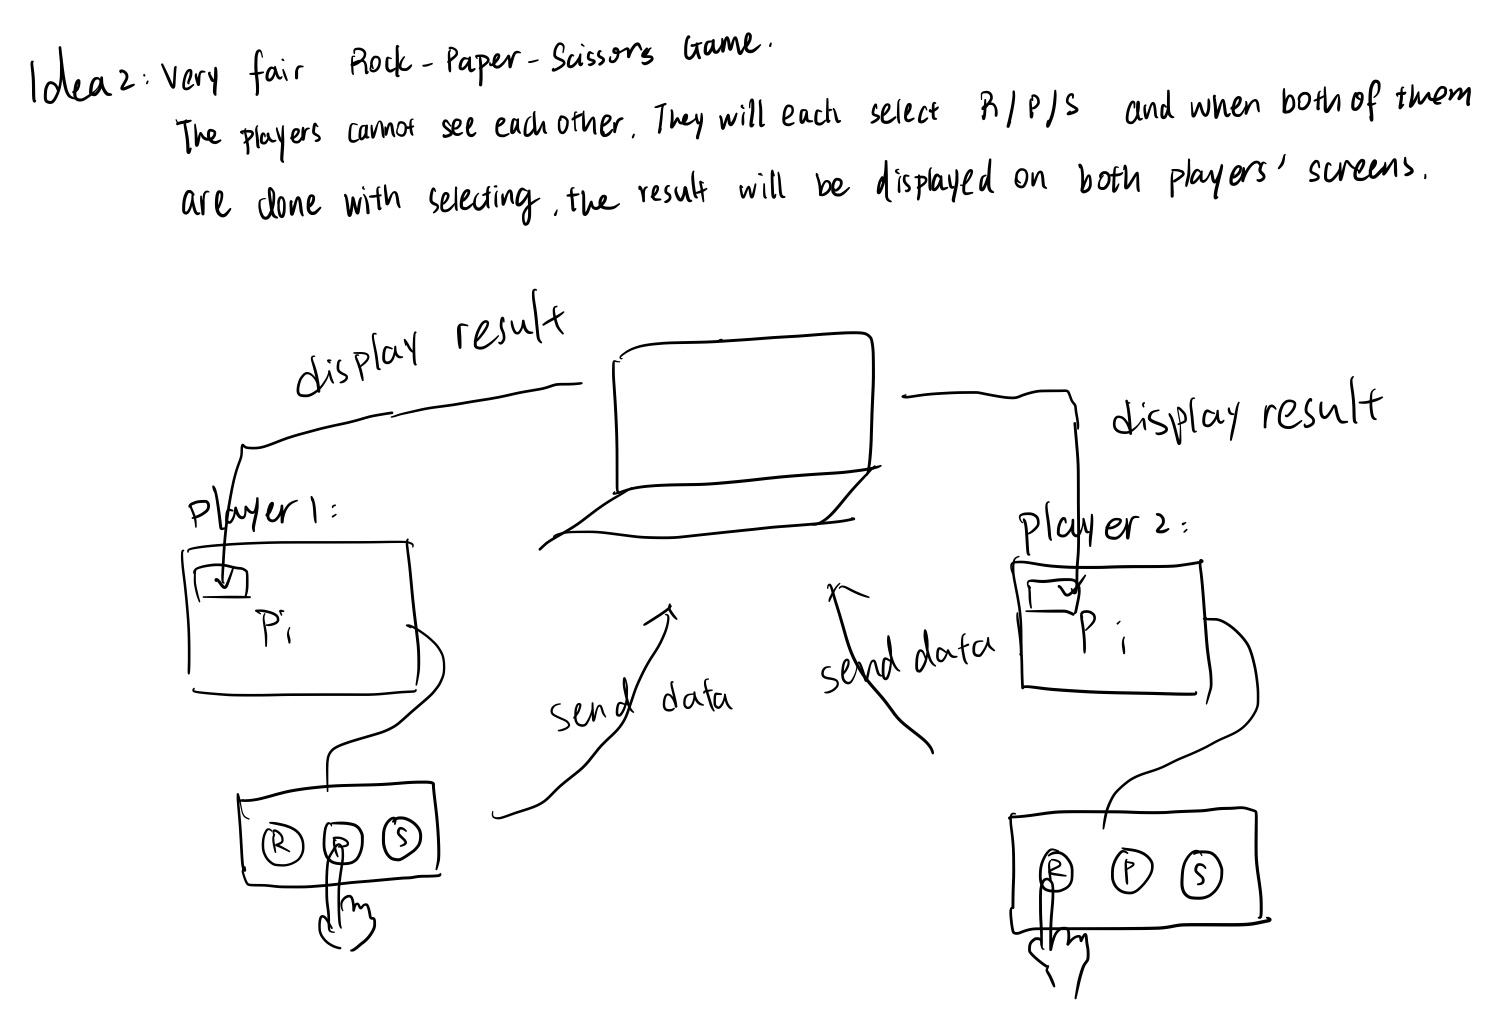 Idea 2: Very fair Rock-Paper-Scissors Game.
The players cannot see each other. They will each select R/P/S and when both of them
are done with selecting, the result will be displayed on both players' screens.
display result
display result
Player 1:
Player 2:
Pi
Pi
send data
send data
R P S
R P S